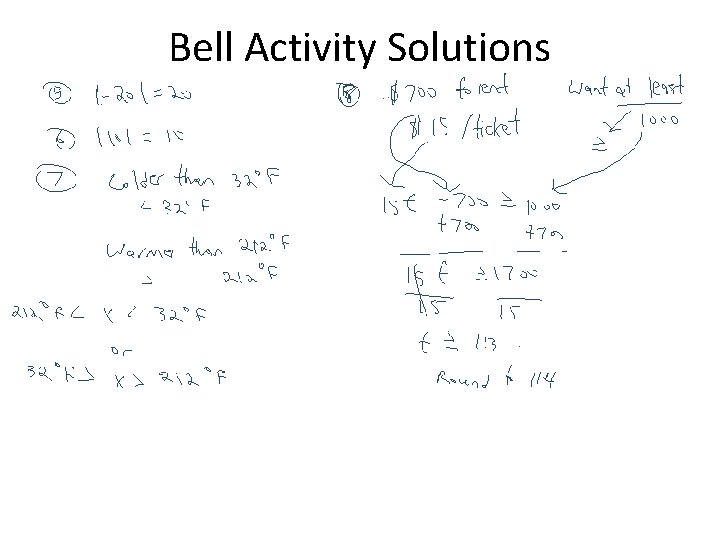 Bell Activity Solutions
⑤ |-20| = 20
⑥ |10| = 10
⑦ Colder than 32°F
< 32° F
Warmer than 212°F
> 212°F
212°F < x < 32°F
or
32°F > x > 212°F
⑧ $700 to rent
$15 /ticket
Want at least
≥ 1000
15t - 700 ≥ 1000
+700 +700
15t ≥ 1700
15 15
t ≥ 113.
Round to 114